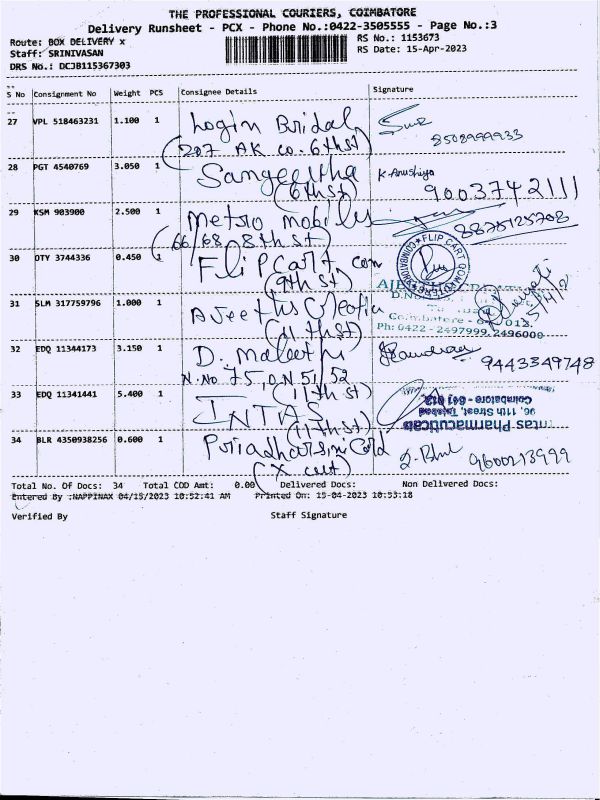 THE PROFESSIONAL COURIERS, COIMBATORE
Delivery Runsheet - PCX - Phone No.:0422-3505555 - Page No.:3
Route: BOX DELIVERY x
RS No.: 1153673
Staff: SRINIVASAN
RS Date: 15-Apr-2023
DRS No.: DCJB115367303
S No Consignment No Weight PCS Consignee Details Signature
27 VPL 518463231 1.100 1 Login Bridal
(207 AK co. 6th st)
8508999933
28 PGT 4540769 3.050 1 Sangeetha
(6th st)
K. Anushiya
9003742111
29 KSM 903900 2.500 1 Metro mobiles
(66, 68. 8th st)
8875125708
30 OTY 3744336 0.450 1 Flipcart com
(9th st)
FLIP CART
31 SLM 317759796 1.000 1 Ajeeths Creatio
(11th st)
Coimbatore - 641 012.
Ph: 0422 - 2497999, 2496000
32 EDQ 11344173 3.150 1 D. Maleethi
N.No. 75, O.N 51, 52
(11th st)
9443349748
33 EDQ 11341441 5.400 1 INTAS
(11th st)
ntas Pharmaceuticals
96, 11th Street, Tatabad
Coimbatore - 641 012.
34 BLR 4350938256 0.600 1 Priadharsini Cold
(x cut)
9600213999
Total No. Of Docs: 34 Total COD Amt: 0.00 Delivered Docs: Non Delivered Docs:
Entered By :NAPPINAX 04/15/2023 10:52:41 AM Printed On: 15-04-2023 10:53:18
Verified By Staff Signature